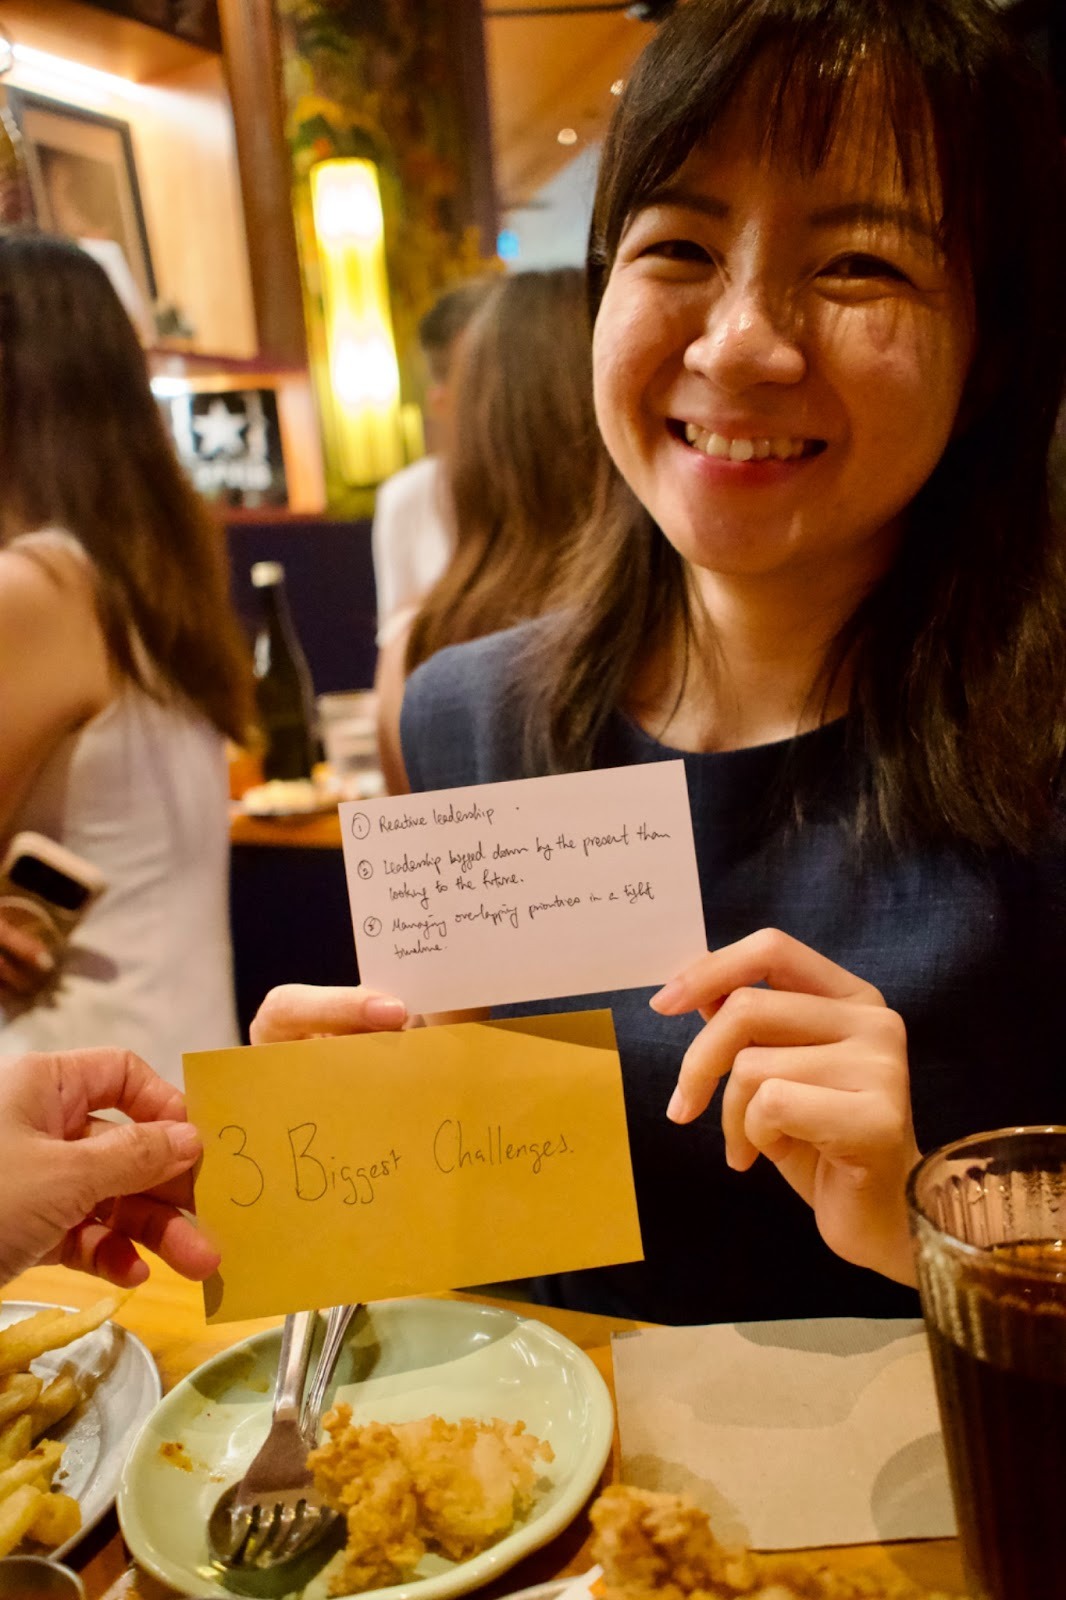 ① Reactive leadership.
② Leadership bogged down by the present than
looking to the future.
③ Managing overlapping priorities in a tight
timeline.
3 Biggest Challenges.